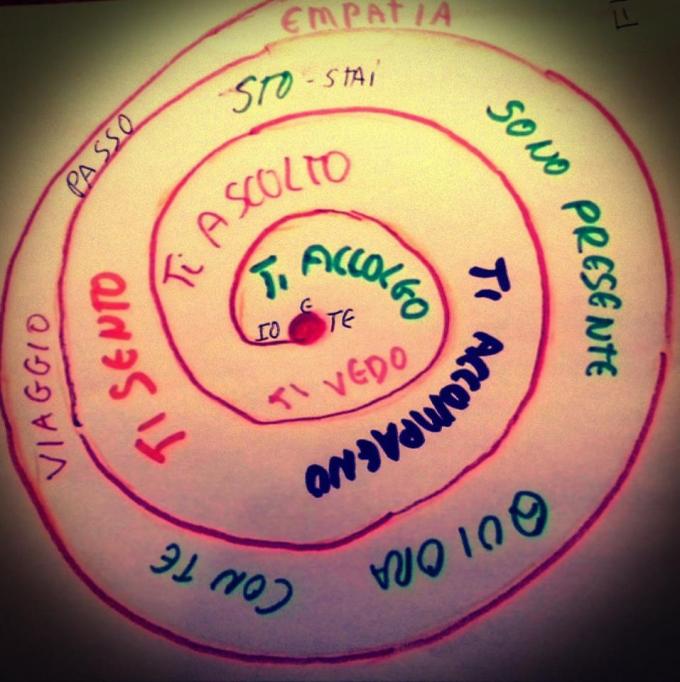 IO E TE
Ti ACCOLGO
TI VEDO
Ti ASCOLTO
Ti ACCOMPAGNO
TI SENTO
STO - STAi
SONO PRESENTE
QUI ORA
CON TE
VIAGGIO
PASSO
EMPATIA